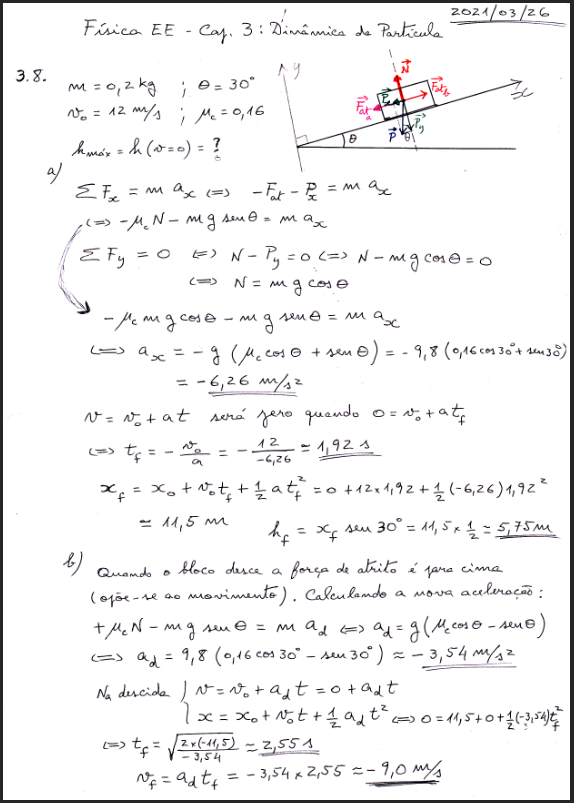 2021/03/26
Física EE - Cap. 3: Dinâmica da Partícula
3.8. m = 0,2 kg ; θ = 30°
v₀ = 12 m/s ; μc = 0,16
hmáx = h(v=0) = ?
y
N
Fat_b
Px
Fat_a
x
P
θ
Py
θ
a)
ΣFx = m ax ⇔ -Fat - Px = m ax
⇔ -μc N - m g senθ = m ax
ΣFy = 0 ⇔ N - Py = 0 ⇔ N - m g cosθ = 0
⇔ N = m g cosθ
-μc m g cosθ - m g senθ = m ax
⇔ ax = -g (μc cosθ + senθ) = -9,8 (0,16 cos30° + sen30°)
= -6,26 m/s²
v = v₀ + at será zero quando 0 = v₀ + a tf
⇔ tf = - v₀/a = - 12/-6,26 ≈ 1,92 s
xf = x₀ + v₀ tf + 1/2 a tf² = 0 + 12×1,92 + 1/2 (-6,26) 1,92²
≈ 11,5 m hf = xf sen 30° = 11,5 × 1/2 ≈ 5,75 m
b) Quando o bloco desce a força de atrito é para cima
(opõe-se ao movimento). Calculando a nova aceleração:
+μc N - m g senθ = m ad ⇔ ad = g(μc cosθ - senθ)
⇔ ad = 9,8 (0,16 cos30° - sen30°) ≈ -3,54 m/s²
Na descida { v = v₀ + ad t = 0 + ad t
x = x₀ + v₀ t + 1/2 ad t² ⇔ 0 = 11,5 + 0 + 1/2 (-3,54) tf²
⇔ tf = √(2×(-11,5)/-3,54) ≈ 2,55 s
vf = ad tf = -3,54 × 2,55 ≈ -9,0 m/s